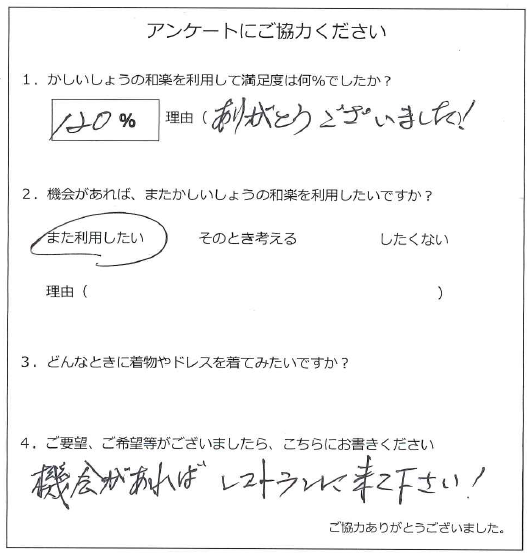 アンケートにご協力ください
1．かしいしょうの和楽を利用して満足度は何%でしたか？
120 % 理由（ありがとうございました!
2．機会があれば、またかしいしょうの和楽を利用したいですか？
また利用したい そのとき考える したくない
理由（ ）
3．どんなときに着物やドレスを着てみたいですか？
4．ご要望、ご希望等がございましたら、こちらにお書きください
機会があれば レストランに来て下さい!
ご協力ありがとうございました。